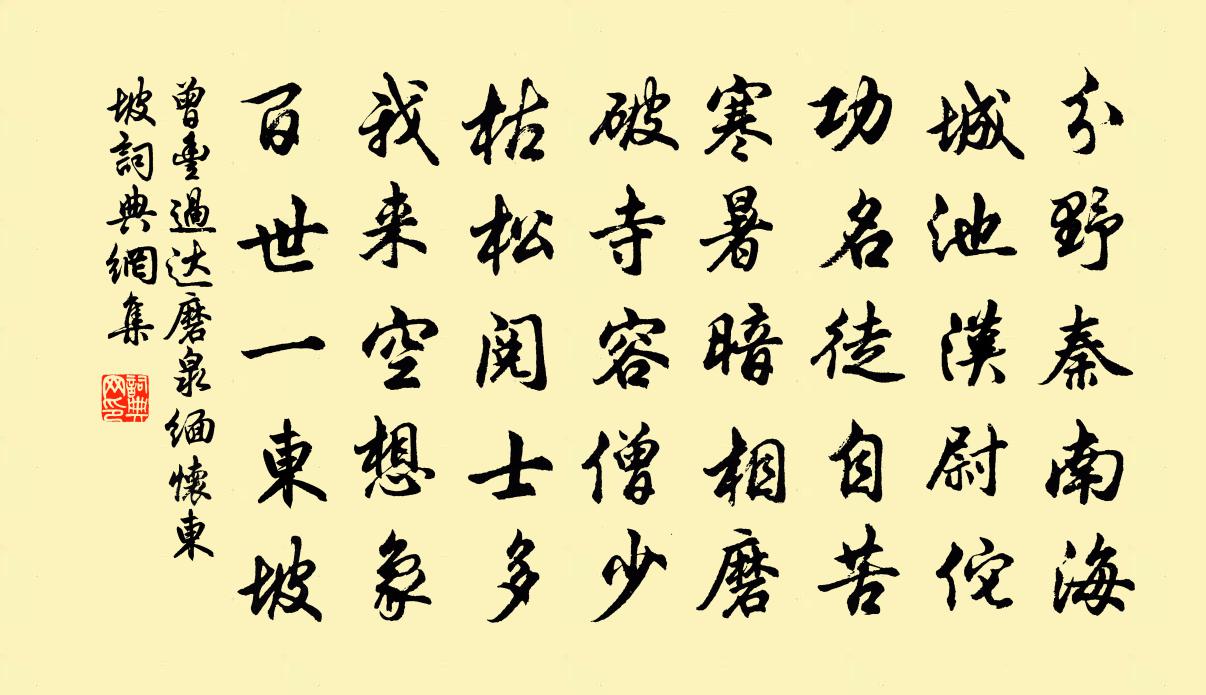 分野秦南海
城池漢尉佗
功名徒自苦
寒暑暗相磨
破寺容僧少
枯松閱士多
我来空想象
百世一東坡
曾豊過达磨泉緬懷東
坡詞典網集
詞典
网印